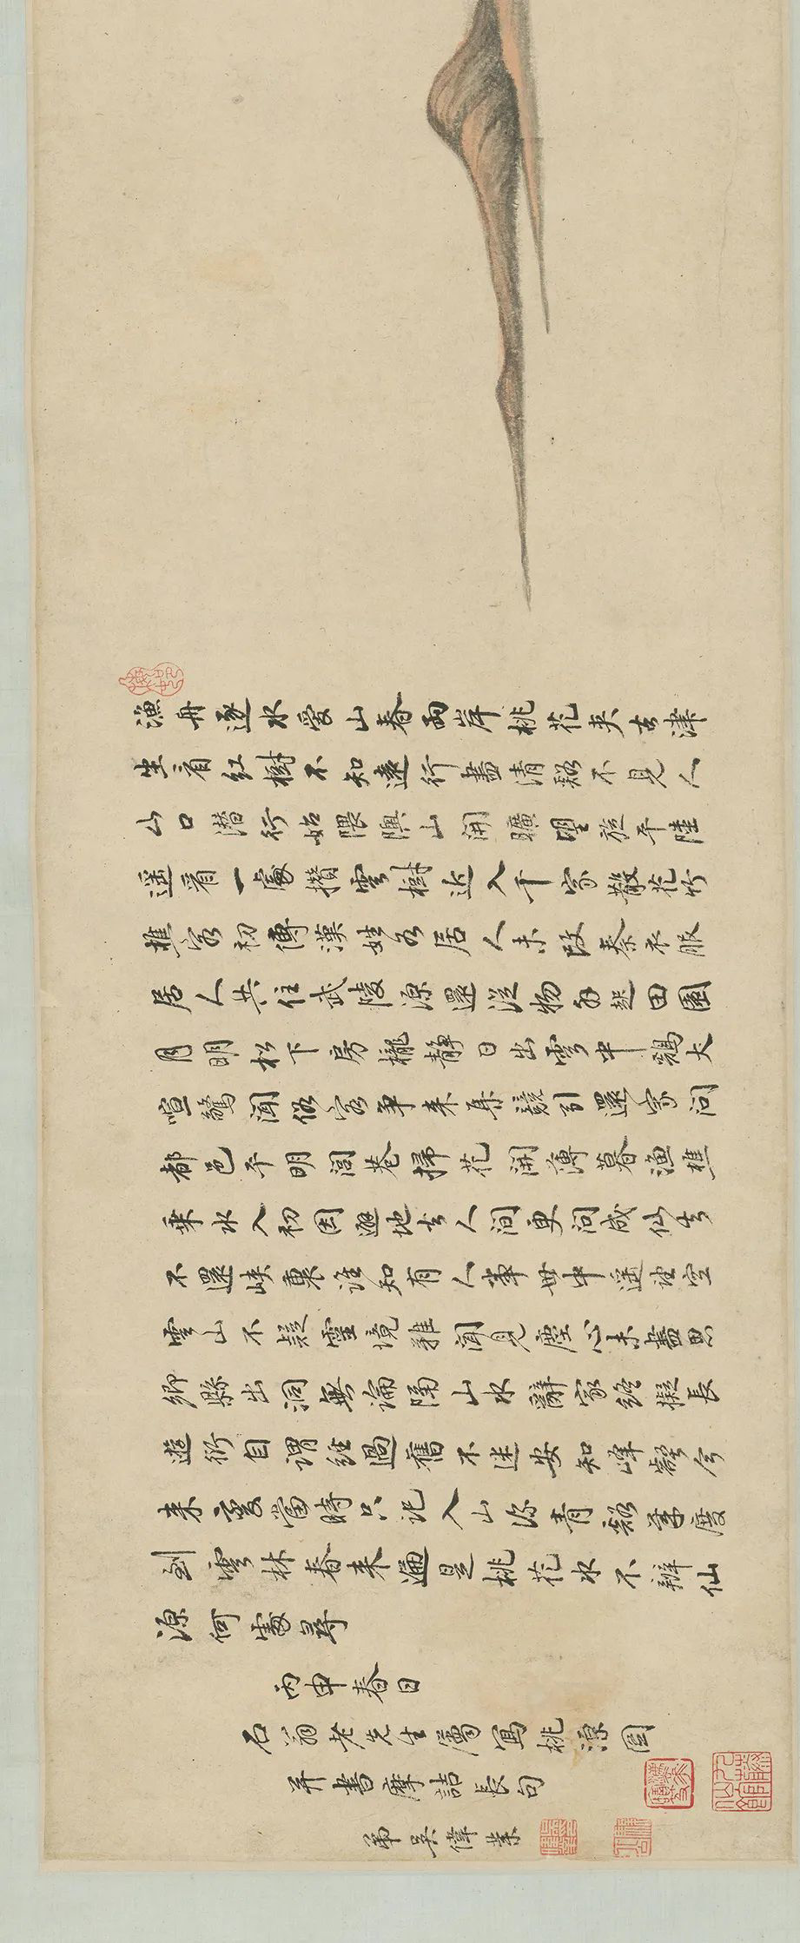 漁舟逐水愛山春兩岸桃花夾古津
坐看紅樹不知遠行盡清谿不見人
山口潛行始隈隩山開曠望旋平陸
遥看一處攢雲樹近入千家散花竹
樵客初傳漢姓名居人未改秦衣服
居人共住武陵源還從物外起田園
月明松下房櫳静日出雲中鷄犬
喧驚聞俗客争来集競引還家問
都邑平明閭巷掃花開薄暮漁樵
乗水入初因避地去人間更問成仙去
不還峽裏誰知有人事世中遥望空
雲山不疑靈境難聞見塵心未盡思
鄉縣出洞無論隔山水辭家終擬長
遊衍自謂經過舊不迷安知峰壑今
来變當時只記入山深青谿幾度
到雲林春来遍是桃花水不辨仙
源何處尋
丙申春日
石翁老先生屬寫桃源圖
并書摩詰長句
弟吳偉業